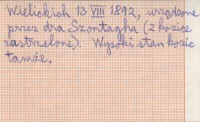 Wielickich 13 VIII 1892, urządzone
przez dra Szontagha (2 kozice
zastrzelone). Wysoki stan kozic
tamże.